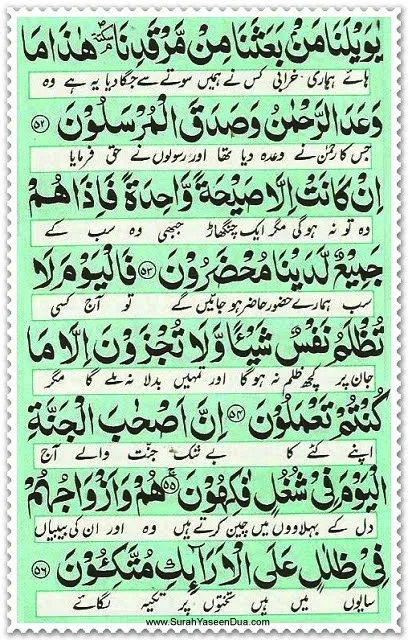 يٰوَيْلَنَا مَنْۢ بَعَثَنَا مِنْ مَّرْقَدِنَا ۘسكتة هٰذَا مَا
ہائے ہماری خرابی کس نے ہمیں سوتے سے جگا دیا یہ ہے وہ
وَعَدَ الرَّحْمٰنُ وَصَدَقَ الْمُرْسَلُوْنَ ۵۲
جس کا رحمٰن نے وعدہ دیا تھا اور رسولوں نے حق فرمایا
اِنْ كَانَتْ اِلَّا صَيْحَةً وَّاحِدَةً فَاِذَا هُمْ
وہ تو نہ ہوگی مگر ایک چنگھاڑ جبھی وہ سب کے
جَمِيْعٌ لَّدَيْنَا مُحْضَرُوْنَ ۵۳ فَالْيَوْمَ لَا
سب ہمارے حضور حاضر ہو جائیں گے تو آج کسی
تُظْلَمُ نَفْسٌ شَيْـًٔا وَّلَا تُجْزَوْنَ اِلَّا مَا
جان پر کچھ ظلم نہ ہوگا اور تمہیں بدلا نہ ملے گا مگر
كُنْتُمْ تَعْمَلُوْنَ ۵۴ اِنَّ اَصْحٰبَ الْجَنَّةِ
اپنے کئے کا بے شک جنّت والے آج
الْيَوْمَ فِيْ شُغُلٍ فٰكِهُوْنَ ۵۵ هُمْ وَاَزْوَاجُهُمْ
دل کے بہلاووں میں چین کرتے ہیں وہ اور ان کی بیبیاں
فِيْ ظِلٰلٍ عَلَى الْاَرَآئِكِ مُتَّكِـُٔوْنَ ۵۶
سایوں میں ہیں تختوں پر تکیہ لگائے
www.SurahYaseenDua.com